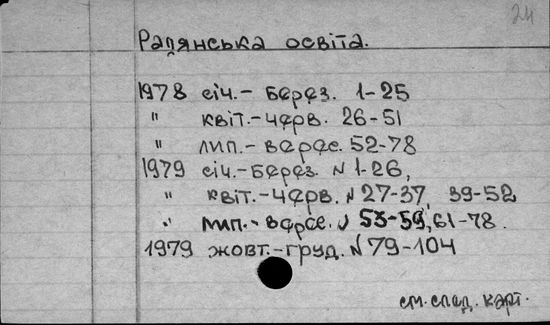 24
Радянська освіта.
1978 січ.- берез. 1-25
" квіт.-черв. 26-51
" лип.- верес. 52-78
1979 січ.-берез. N 1-26,
" квіт.-черв. N 27-37, 39-52
" лип.- верес. N 53-59, 61-78.
1979 жовт.-груд. N 79-104
см. след. карт.